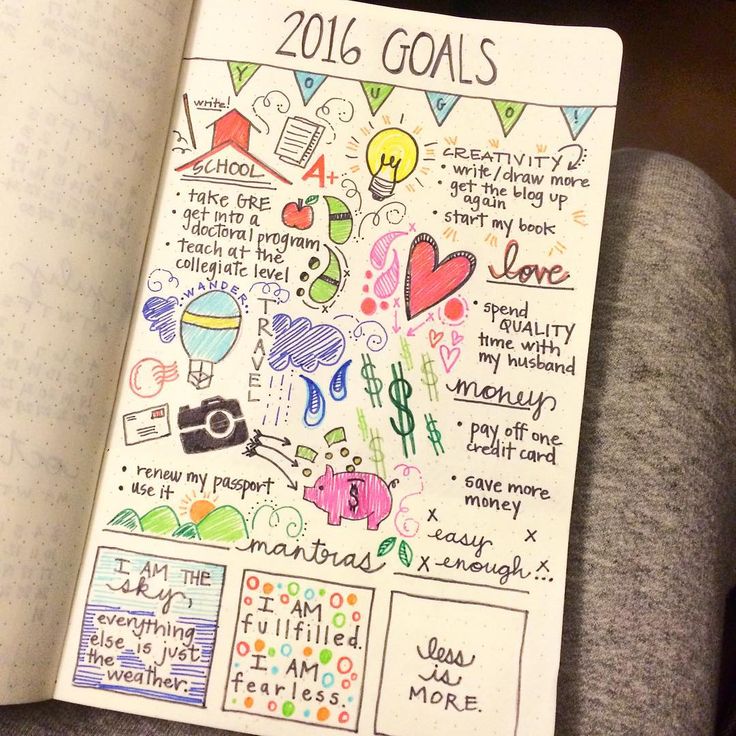 2016 GOALS
YOU GO!
write!
SCHOOL
A+
• take GRE
• get into a
doctoral program
• teach at the
collegiate level
CREATIVITY
• write/draw more
• get the blog up
again
• start my book
love
• spend
QUALITY
time with
my husband
WANDER
TRAVEL
• renew my passport
• use it
money
• pay off one
credit card
• save more
money
$ $ $ $ $ $
$
x easy x
x enough...
mantras
I AM THE
sky,
everything
else is just
the weather.
I AM
fullfilled.
I AM
fearless.
less
is
MORE.